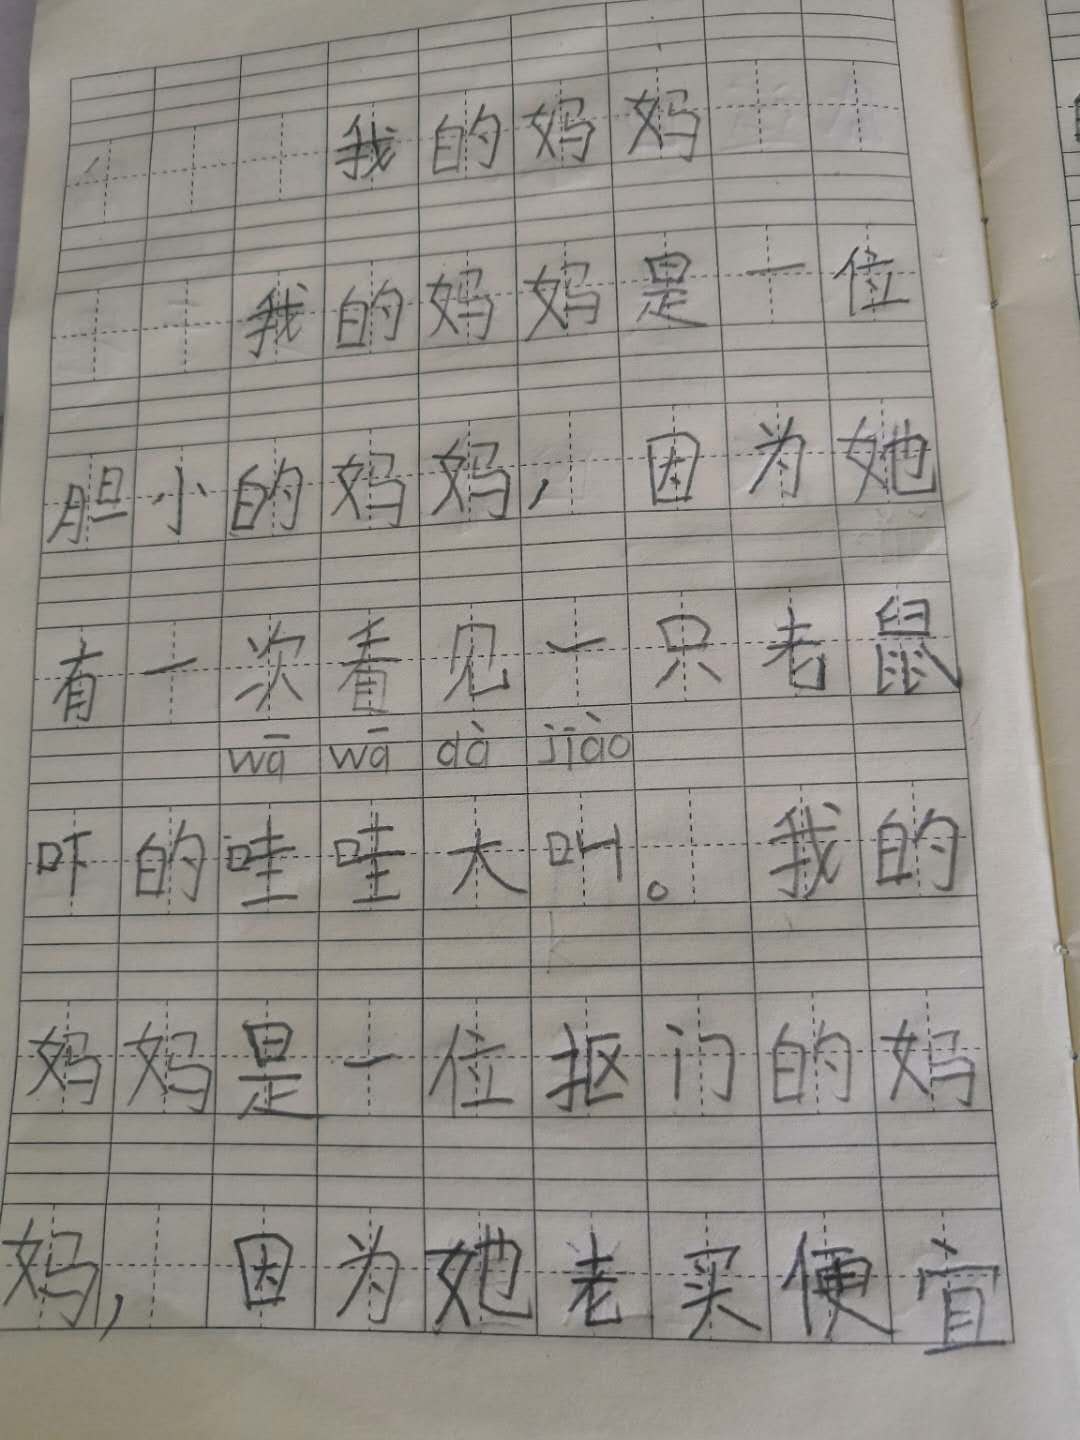 我的妈妈
我的妈妈是一位
胆小的妈妈，因为她
有一次看见一只老鼠
wā wā dà jiào
吓的哇哇大叫。我的
妈妈是一位抠门的妈
妈，因为她老买便宜